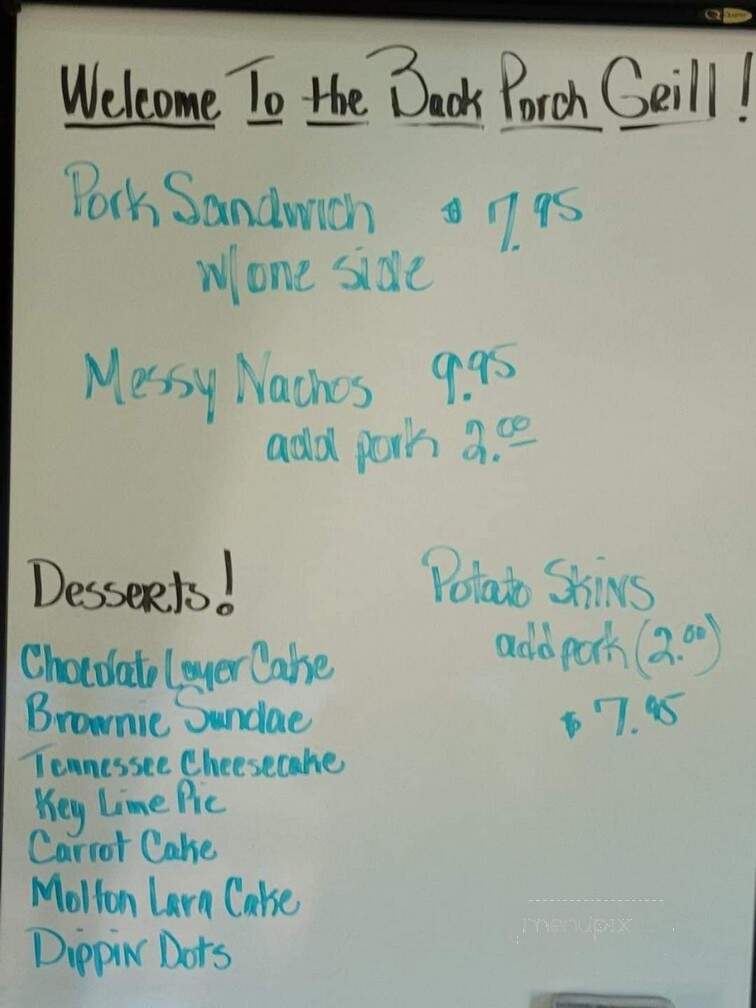 Welcome To the Back Porch Grill!
Pork Sandwich $ 7.95
w/one side
Messy Nachos 9.95
add pork 2.00
Desserts!
Chocolate Layer Cake
Brownie Sundae
Tennessee Cheesecake
Key Lime Pie
Carrot Cake
Molton Lava Cake
Dippin Dots
Potato Skins
add pork (2.00)
$ 7.95
menupix